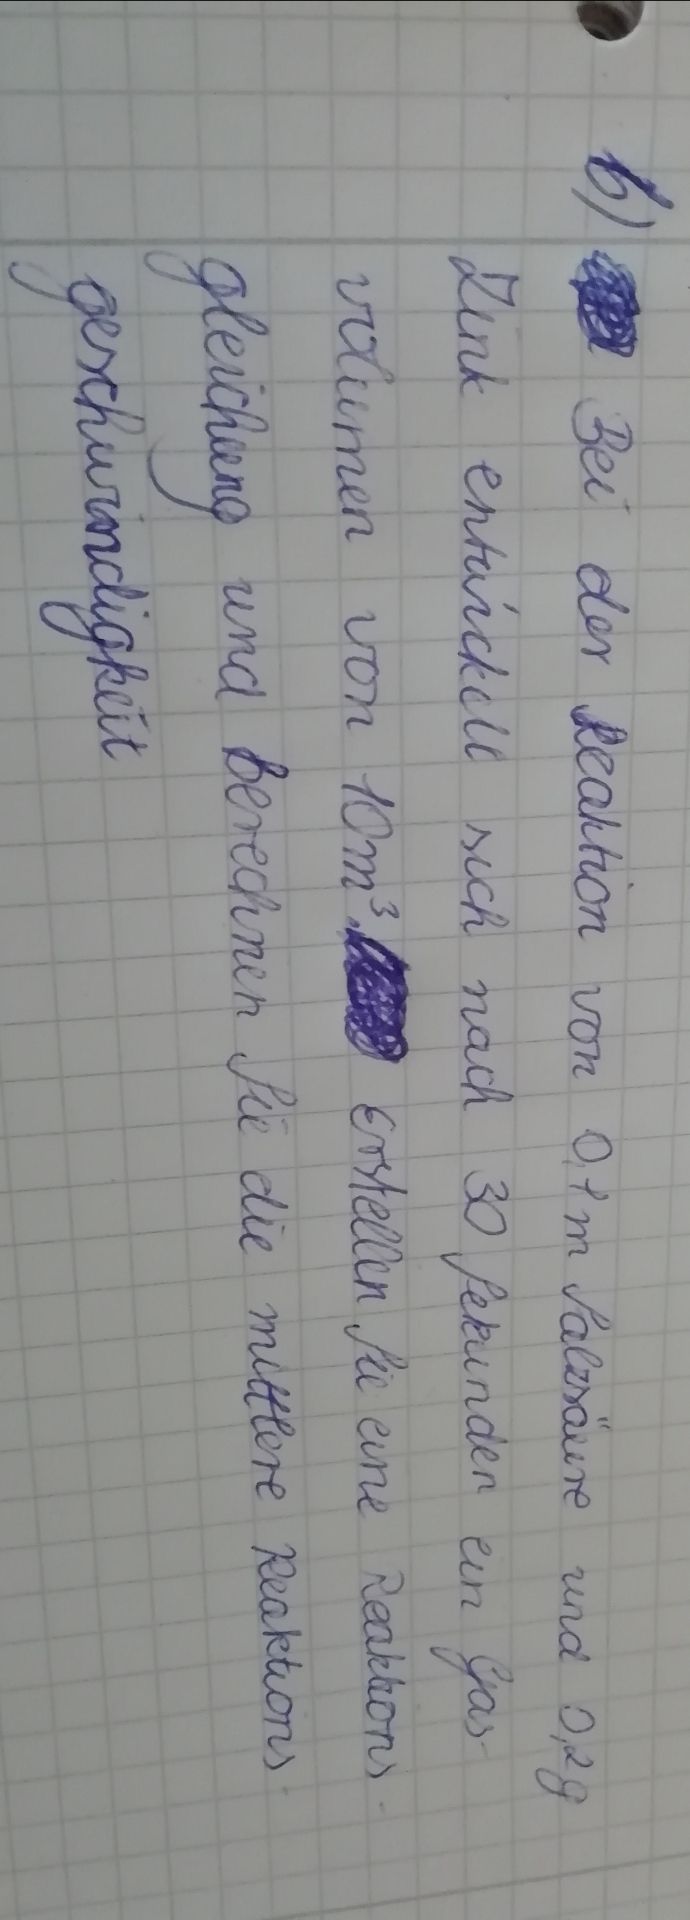 b) Bei der Reaktion von 0,1 m Salzsäure und 0,2g
Zink entwickelt sich nach 30 Sekunden ein Gas-
volumen von 10m³. Erstellen Sie eine Reaktions-
gleichung und berechnen Sie die mittlere Reaktions-
geschwindigkeit